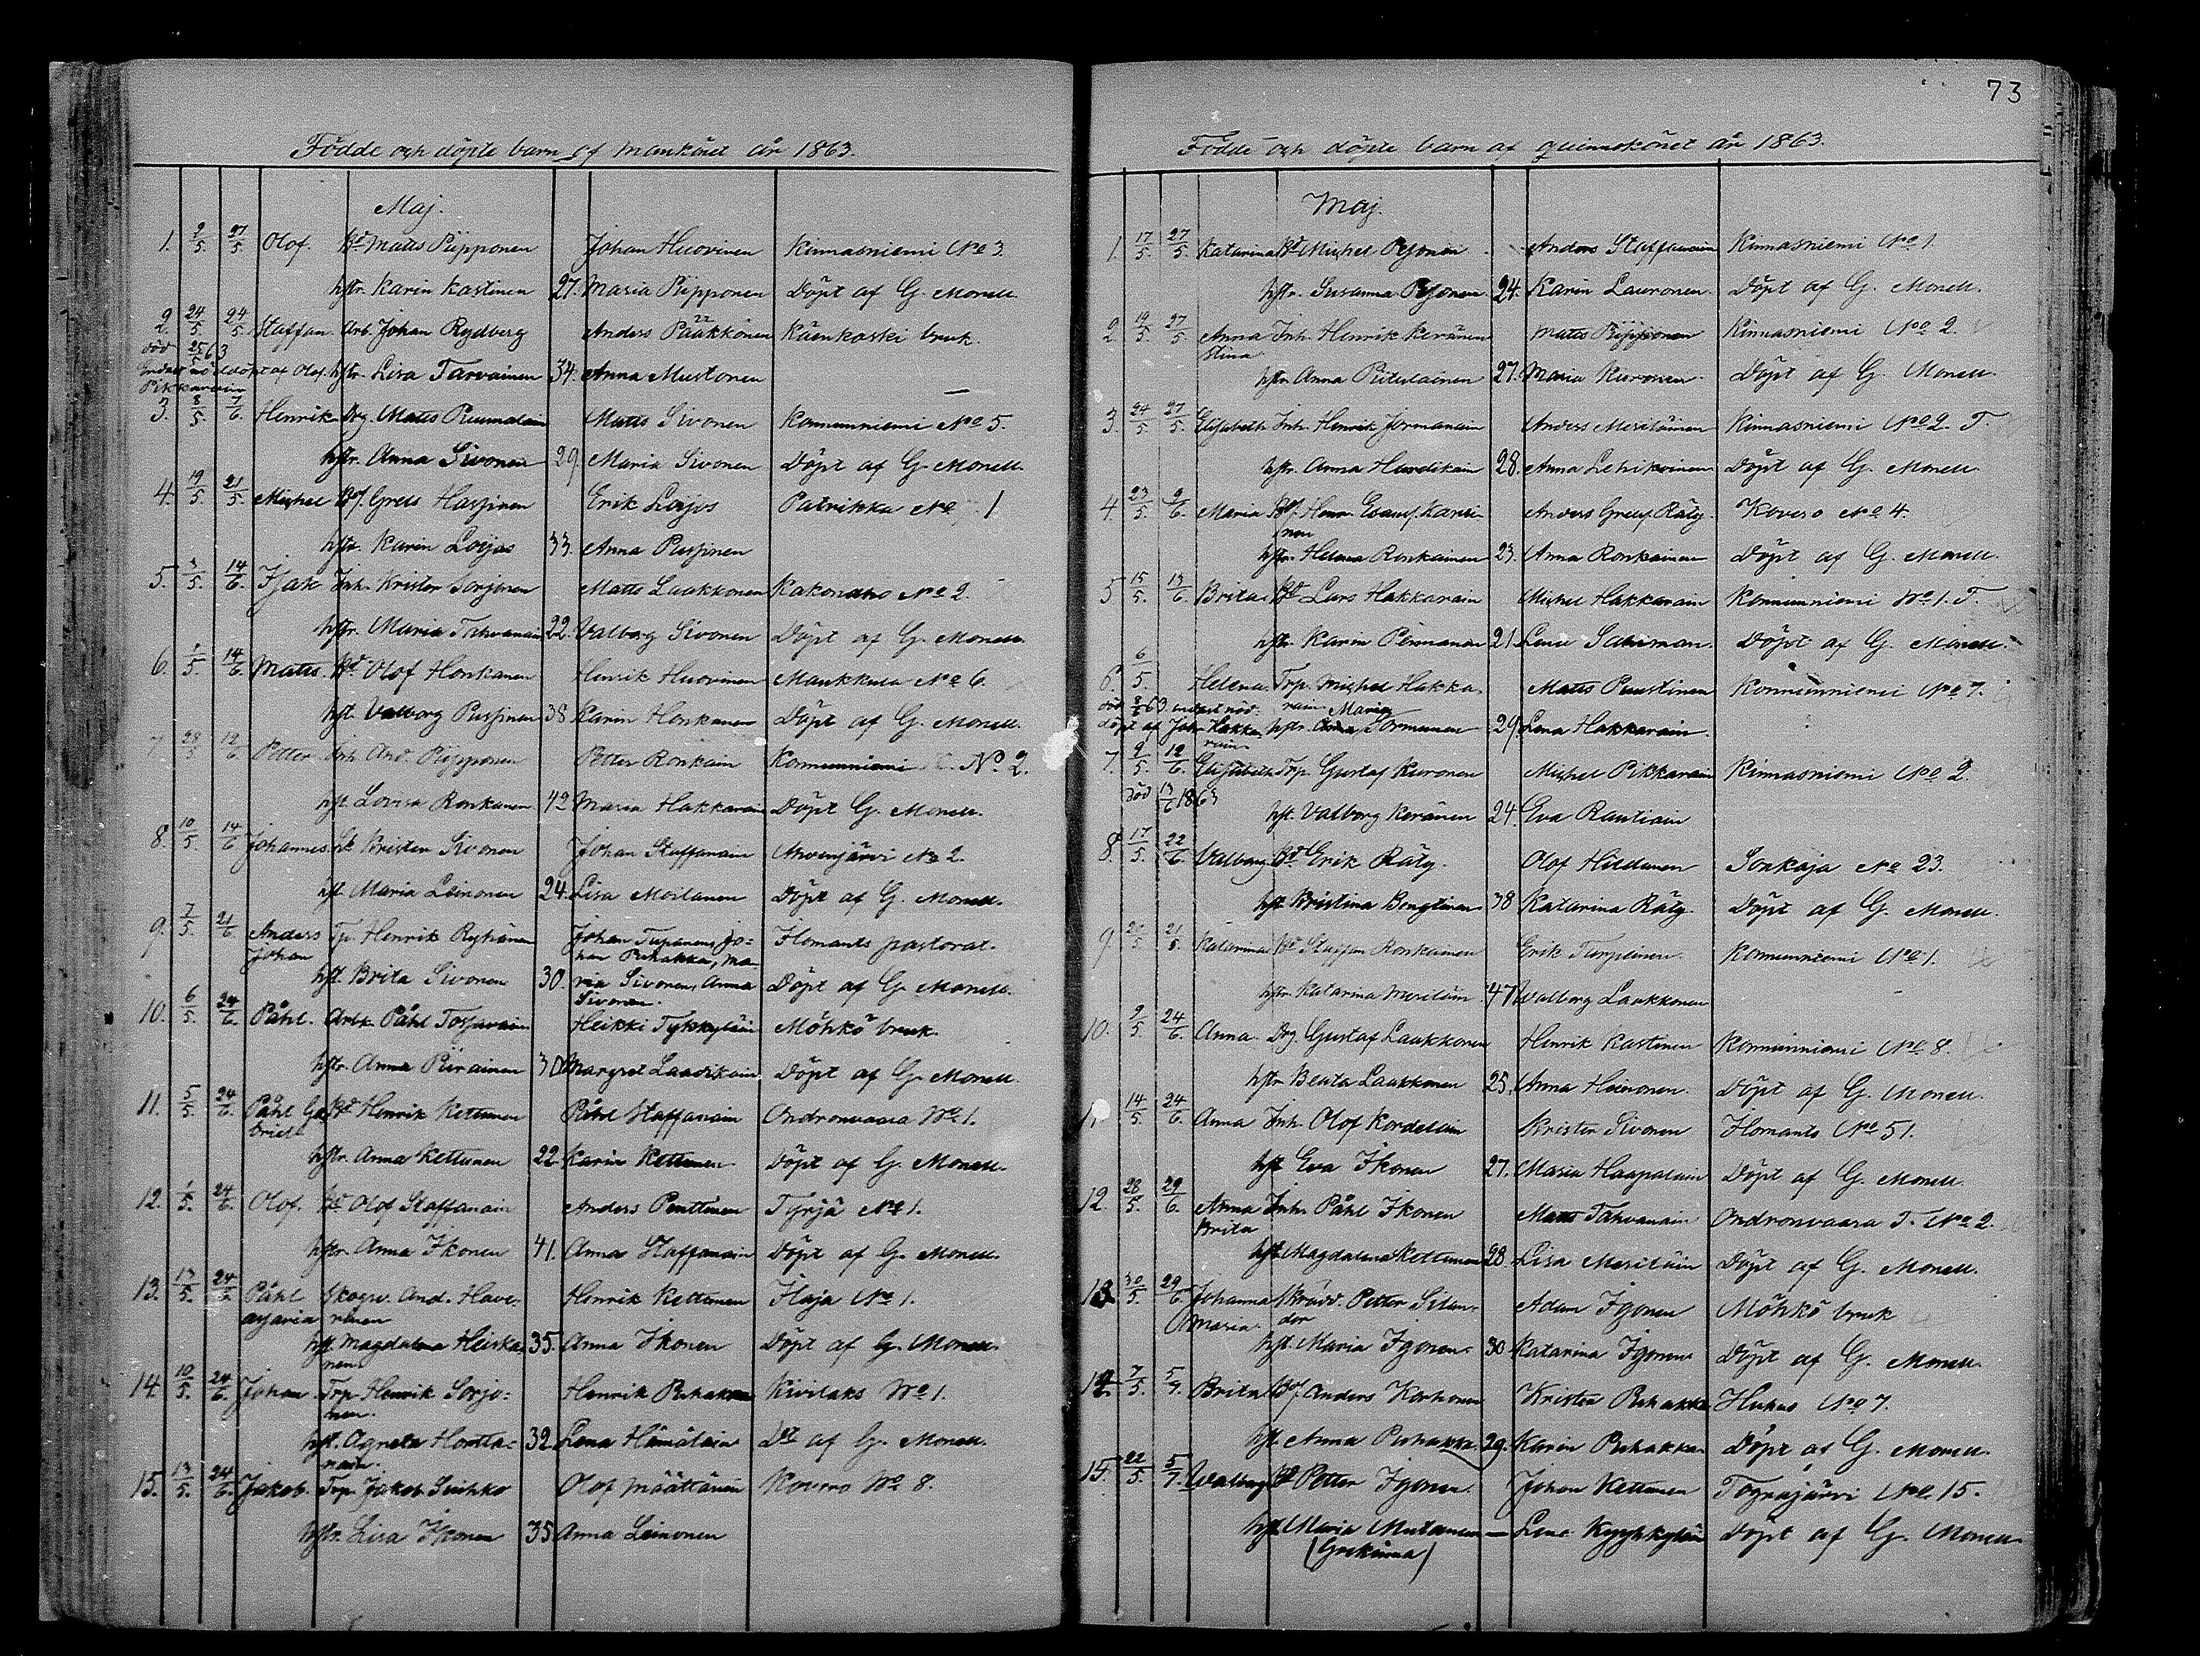 73
Födde och döpte barn af mankönet år 1863.
Maj.
1. 9/5 27/5 Olof. Bd Matts Piipponen Johan Huovinen Kinnasniemi No 3.
hstr. Karin Kastinen 27. Maria Piipponen Döpt af G. Monell.
2. 24/5 24/5 Staffan. Arb. Johan Rydberg Anders Pääkkönen Käenkoski bruk.
död 25/5 63
Endast nöddöpt af Olof. hstr. Lisa Tarvainen 34. Anna Mustonen
Pikkarain
3. 8/5 7/6 Henrik Drg. Matts Puumalain Matts Sivonen Konnunniemi No 5.
hstr. Anna Sivonen 29. Maria Sivonen Döpt af G. Monell.
4. 19/5 21/5 Michel Bs. Grels Hassinen Erik Loijas Patrikka No 1
hstr. Karin Loijas 33. Anna Pussinen
5. 3/5 14/6 Isak Inh. Krister Sorjonen Matts Laakkonen Kakonaho No 2.
hstr. Maria Tahvanain 22. Valborg Sivonen Döpt af G. Monell.
6. 1/5 14/6 Matts Bd Olof Honkanen Henrik Huovinen Maukkula No 6.
hst. Valborg Pussinen 38 Karin Honkanen Döpt af G. Monell.
7. 28/5 12/6 Petter Inh. And. Piipponen Petter Ronkain Konnunniemi No. 2.
hst. Lovisa Ronkanen 42 Maria Hakkarain Döpt G. Monell.
8. 10/5 14/6 Johannes. Krister Sivonen Johan Staffanain Akvenjärvi No 2.
hst. Maria Leinonen 24. Lisa Moilanen Döpt af G. Monell.
9. 7/5 21/6 Anders Tp. Henrik Ryhänen Johan Turunen, Jo= Ilomants pastorat.
Johan han Puhakka, Ma-
hst. Brita Sivonen 30. ria Sivonen, Anna Döpt af G. Monell.
Sivonen.
10. 6/5 24/6 Påhl. Arbk. Påhl Tossavain Heikki Tykkyläin Möhkö bruk.
hstr. Anna Piirainen 30 Margret Laadikain Döpt af G. Monell.
11. 5/5 24/6 Påhl Ga Bd Henrik Kettunen Påhl Staffanain Ondronvaara No 1.
briel
hstr. Anna Kettunen 22 Karin Kettunen Döpt af G. Monell.
12. 1/5 24/6 Olof. Bd Olof Staffanain Anders Penttinen Tyrjä No 1.
hstr. Anna Ikonen 41. Anna Staffanain Döpt af G. Monell.
13. 13/5 24/6 Påhl Skogv. And. Have- Henrik Kettunen Ilaja No 1.
asaria rinen
hst. Magdalena Heiska 35. Anna Ikonen Döpt af G. Monell.
nen
14. 10/5 24/6 Johan Trp. Henrik Sorjo= Henrik Puhakka Kivilaks No 1.
nen.
hst. Agneta Hontta= 32. Lena Hämäläin Dt af G. Monell.
nain.
15. 13/5 24/6 Jakob. Trp. Jakob Suihko Olof Määttänen Kovero No 8.
hstr. Lisa Ikonen 35 Anna Leinonen
Födde och döpte barn af quinnokönet år 1863.
Maj.
1. 17/5 27/5 Katarina Bd Michel Pesonen Anders Staffanain Kinnasniemi No 1.
hstr. Susanna Pesonen 24. Karin Lauronen. Döpt af G. Monell.
2. 19/5 27/5 Anna Inh. Henrik Keränen Matts Piipponen Kinnasniemi No 2.
Stina
hstr. Anna Pitulainen 27. Maria Kuronen. Döpt af G. Monell.
3. 24/5 27/5 Elisabeth Inh. Henrik Jormanain Anders Meriläinen Kinnasniemi No 2. T.
hstr. Anna Hurskain 28. Anna Lehikoinen Döpt af G. Monell
4. 23/5 9/6 Maria Bs. Henr. Esaias. Karvi- Anders Gust. Räty. Kovero No 4.
nen
hstr. Helena Ronkainen 23. Anna Ronkainen Döpt af G. Monell.
5 15/5 13/6 Brita Bd Lars Hakkarain Michel Hakkarain Konnunniemi No 1. T.
hstr. Karin Pirmanen 21. Lena Sallman. Döpt af G. Monell.
6. 6/5 Helena. Trp. Michel Hakka- Matts Puustinen Konnunniemi No 7.
död 8/5 63. endast nöd. rain Maria
döpt af Joh. Hakka hstr. Anna Tormunen 29. Lena Hakkarain.
rain
7. 9/5 12/6 Elisabeth Trp. Gustaf Kuronen Michel Pikkarain Kinnasniemi No 2.
död 13/6 1863
hst. Valborg Keränen 24. Eva Rautiain
8. 17/5 22/6 Valborg Bd Erik Räty. Olof Hiltunen Sonkaja No 23.
hst. Kristina Bengtinen 38 Katarina Räty Döpt af G. Monell.
9 20/5 21/5 Katarina Bd Staffan Ronkainen Erik Turpeinen. Konnunniemi No 1.
hstr. Katarina Meriläin 47 Walborg Laakkonen
10. 9/5 24/6 Anna Drg. Gustaf Laakkonen Henrik Kastinen Konnunniemi No 8.
hstr Beata Laakkonen 25. Anna Heinonen. Döpt af G. Monell.
11. 14/5 24/6 Anna Inh. Olof Kordelain Krister Sivonen Ilomants No 51.
hst Eva Ikonen 27. Maria Haapalain Döpt af G. Monell.
12. 28/5 29/6 Anna Inh. Påhl Ikonen Matts Tahvanain Ondronvaara T. No 2.
Brita
hst. Magdalena Kettunen 28. Lisa Meriläin Döpt af G. Monell.
13 30/5 29/6 Johanna Skrädd. Petter Silan- Adam Igonen Möhkö bruk
Maria. der
hst. Maria Igonen. 30 Katarina Igonen Döpt af G. Monell.
14 7/5 5/7. Brita Bs. Anders Korhonen Krister Puhakka Huhus No 7.
hst. Anna Puhakka. 29. Karin Puhakka Döpt af G. Monell.
15. 22/5 5/7. Walborg Bd Petter Igonen. Johan Kettunen Tograjärvi No 15.
hst Maria Mutanen — Lena Kyyhkyläi Döpt af G. Monell
(Grekinna)